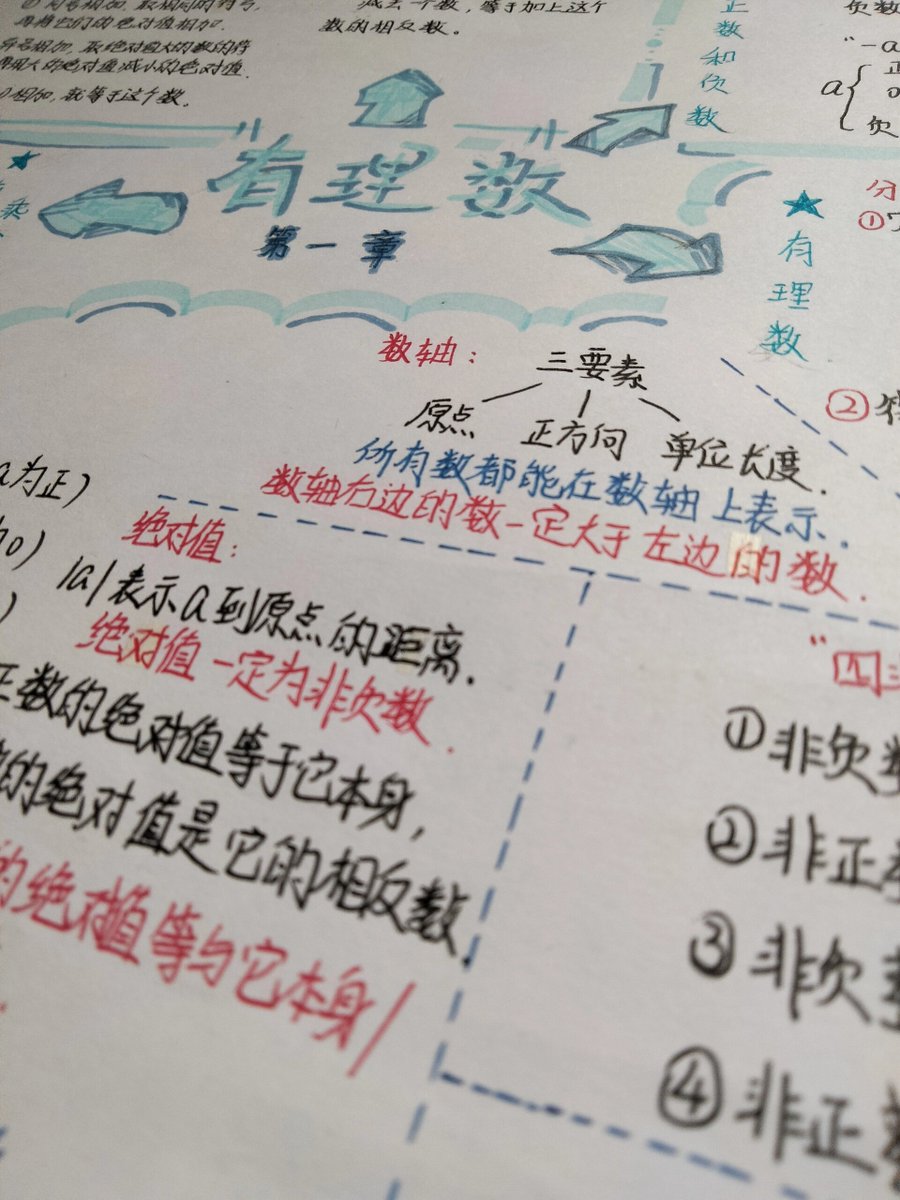 ①同号相加，取相同的符号，
再将它们的绝对值相加.
异号相加，取绝对值大的数的符
用大的绝对值减小的绝对值.
相加，就等于这个数.
减去一个数，等于加上这个
数的相反数。
正数和负数
负数
"-a
a
正
0
负
有理数
第一章
乘
有理数
分
①
②
数轴：
三要素
原点 正方向 单位长度.
所有数都能在数轴上表示.
数轴右边的数一定大于左边的数.
a为正)
为0)
)
绝对值：
|a|表示a到原点的距离.
绝对值一定为非负数.
正数的绝对值等于它本身,
的绝对值是它的相反数.
的绝对值等与它本身/
"四
①非负数
②非正
③非负
④非正